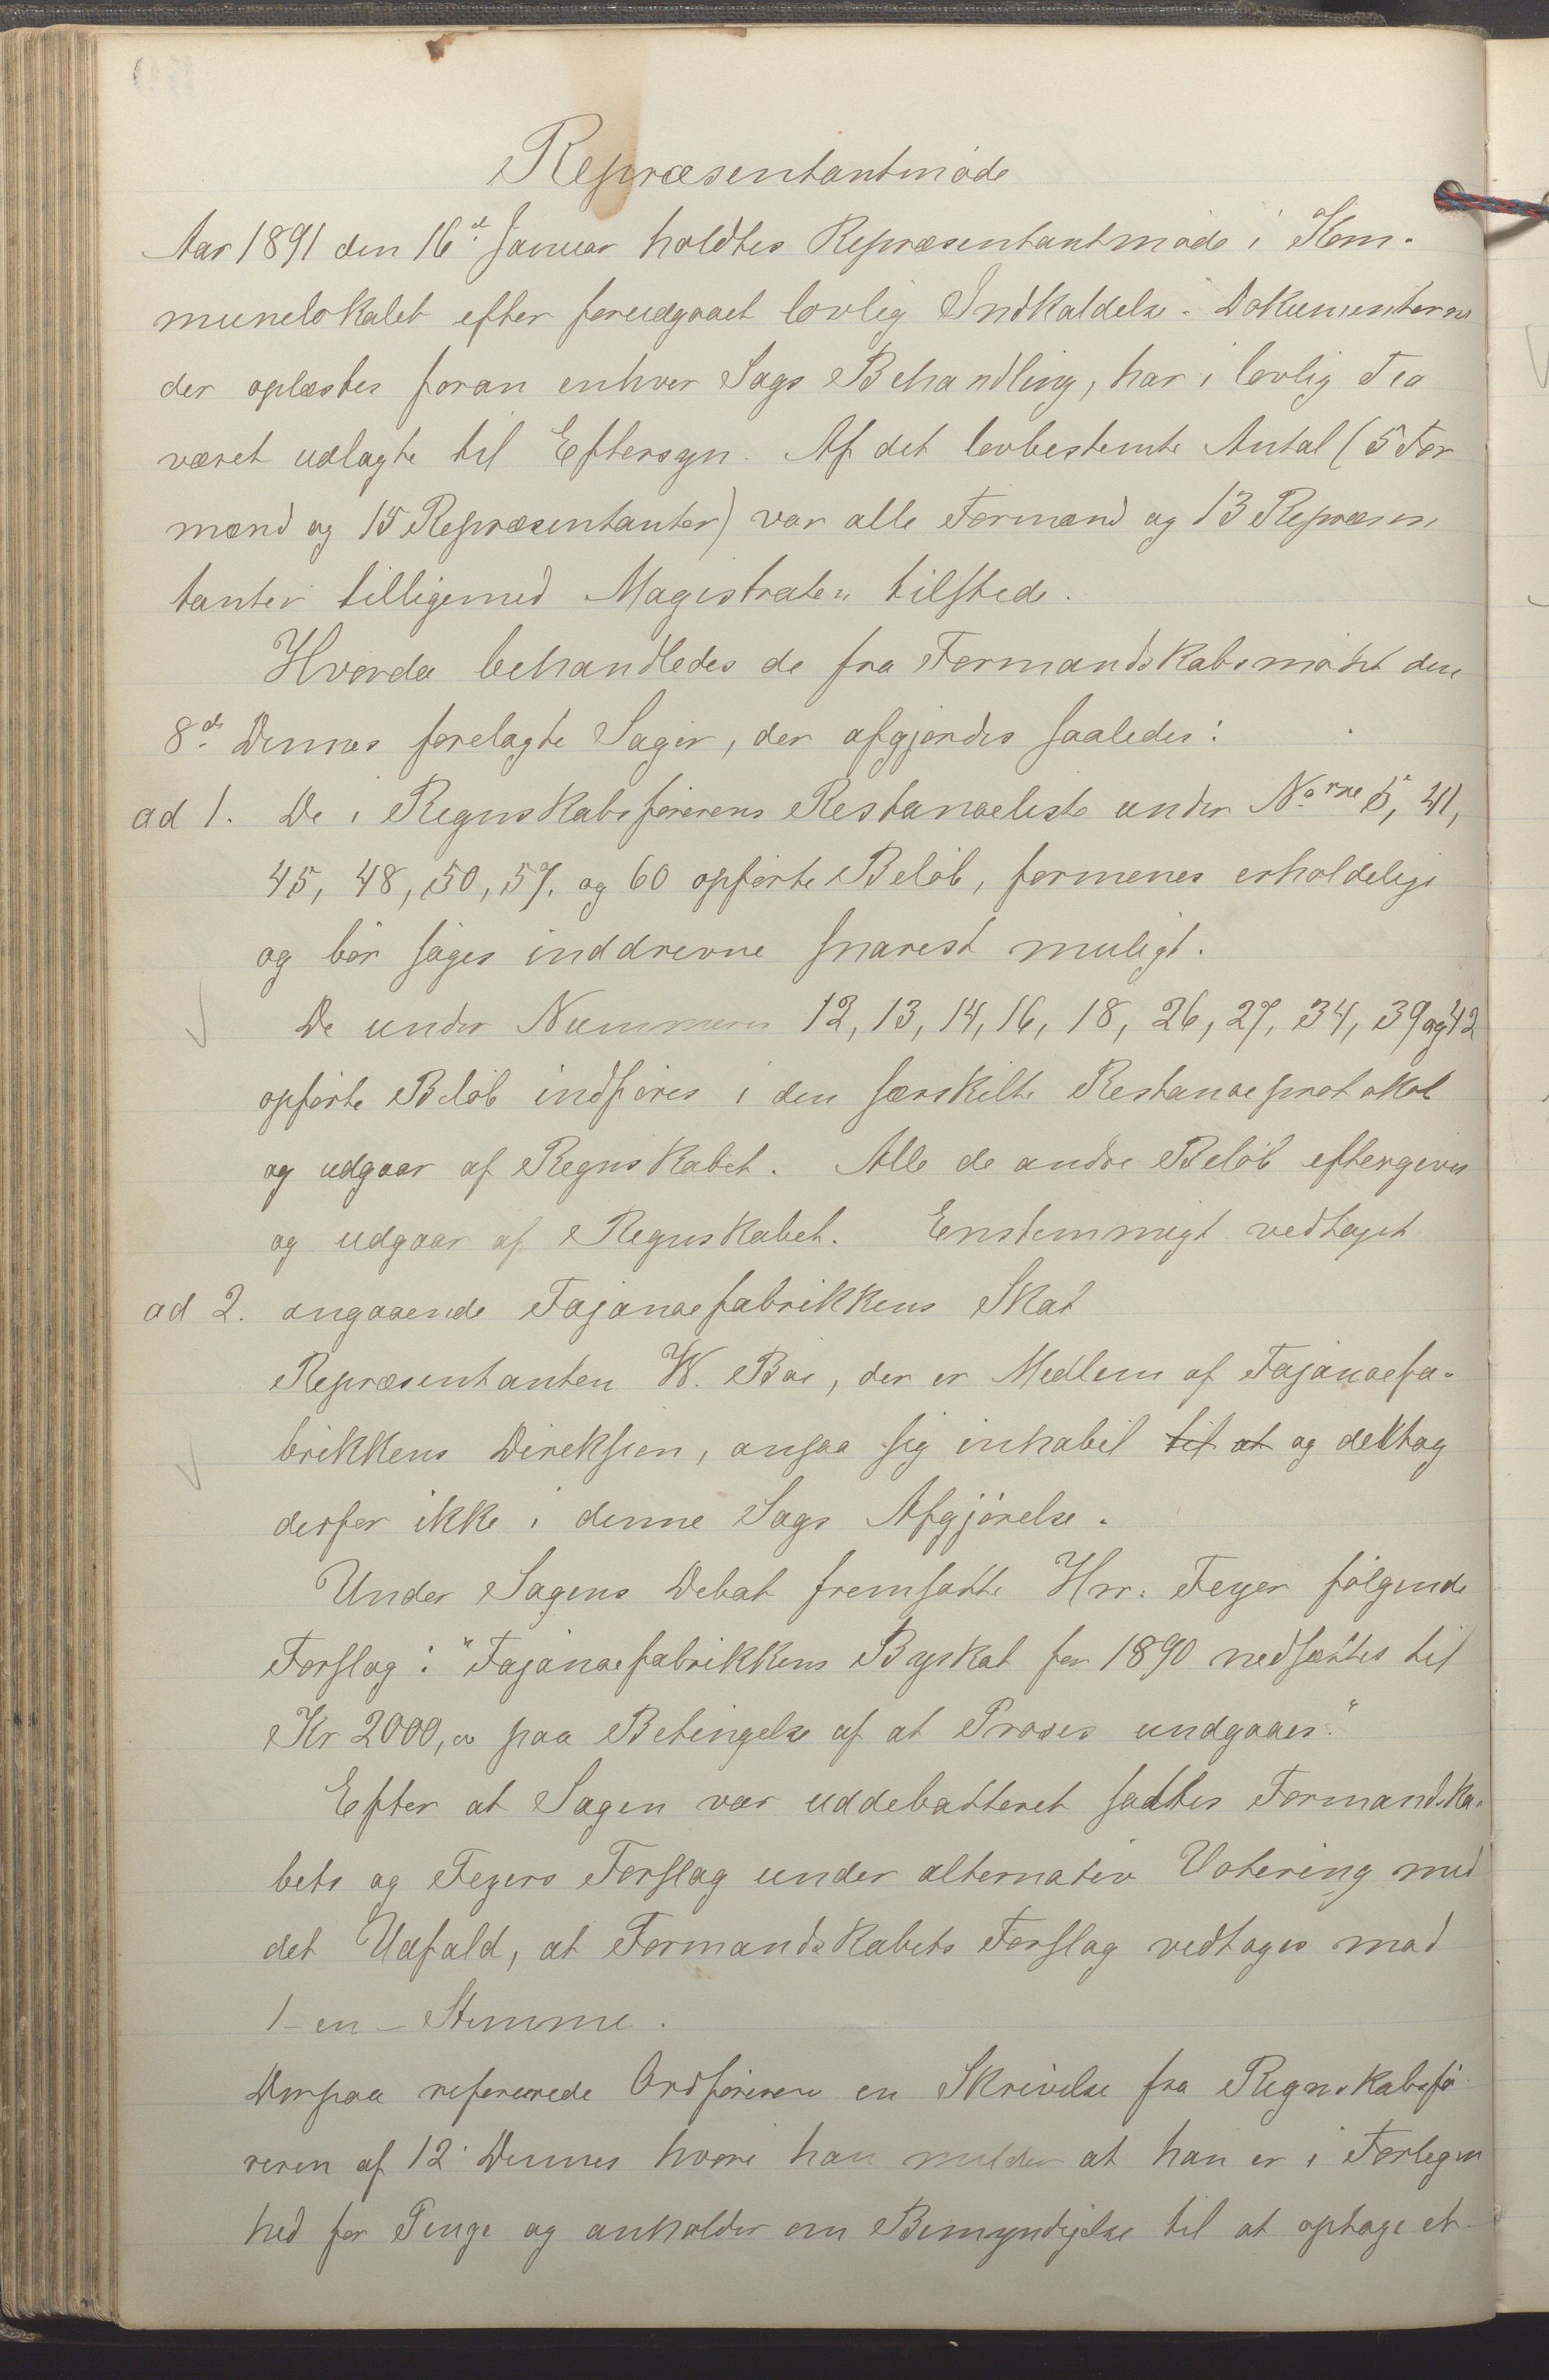 Repræsentantmøde
Aar 1891 den 16d. Januar holdtes Repræsentantmøde i Kom-
munelokalet efter forudgaaet lovlig Indkaldelse. Dokumenterne
der oplæstes foran enhver Sags Behandling, har i lovlig Tid
været udlagte til Eftersyn. Af det lovbestemte Antal (5 For
mænd og 15 Repræsentanter) var alle Formænd og 13 Repræsen
tanter tilligemed Magistraten tilstede.
Hvorda behandledes de fra Formandskabsmødet den
8de Dennes forelagte Sager, der afgjordes saaledes:
ad 1. De i Regnskabsførerens Restanceliste under No rne 5, 41,
45, 48, 50, 57, og 60 opførte Beløb, formenes erholdelige
og bør søges inddrevne snarest muligt.
De under Nummern 12, 13, 14, 16, 18, 26, 27, 34, 39 og 42
opførte Beløb indføres i den særskilte Restanceprotokol
og udgaar af Regnskabet. Alle de andre Beløb eftergives
og udgaar af Regnskabet. Enstemmigt vedtaget
ad 2. angaaende Fajancefabrikkens Skat
Repræsentanten W. Boe, der er Medlem af Fajancefa-
brikkens Direksion, ansaa sig inhabil til at og deltog
derfor ikke i denne Sags Afgjørelse.
Under Sagens Debat fremsatte Hrr. Feyer følgende
Forslag: "Fajancefabrikkens Byskat for 1890 nedsættes til
Kr 2000,00 paa Betingelse af at Proces undgaaes."
Efter at Sagen var uddebatteret sattes Formandska-
bets og Feyers Forslag under alternativ Votering med
det Udfald, at Formandskabets Forslag vedtoges mod
1 - en - Stemme.
Derpaa refererede Ordføreren en Skrivelse fra Regnskabsfø
reren af 12 Dennes hvori han melder at han er i Forlegen
hed for Penge og anholder om Bemyndigelse til at optage et